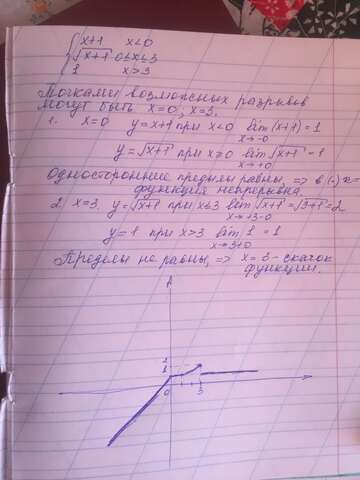 x+1 x<0
√x+1 0≤x≤3
1 x>3
Точками возможных разрывов
могут быть x=0; x=3.
1. x=0 y=x+1 при x<0 lim (x+1)=1
x→-0
y=√x+1 при x≥0 lim √x+1 =1
x→+0
Односторонние пределы равны, => в (·) x=
функция непрерывна
2 x=3, y=√x+1 при x≤3 lim √x+1=√3+1=2
x→+3-0
y=1 при x>3 lim 1 = 1
x→3+0
Пределы не равны, => x=3 - скачок
функции.
2
1
0 3